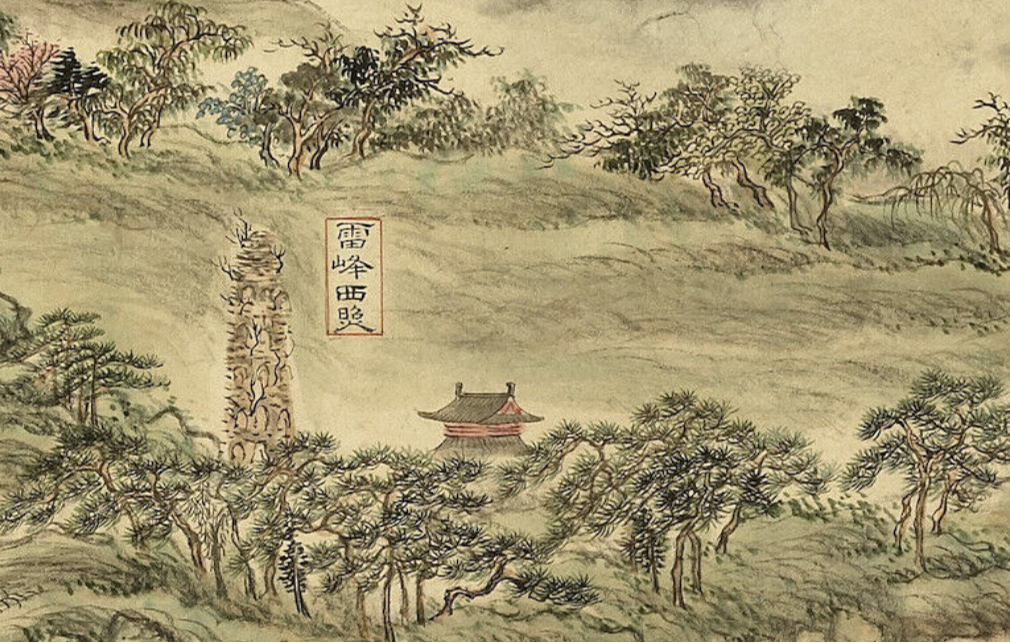 雷峰西照